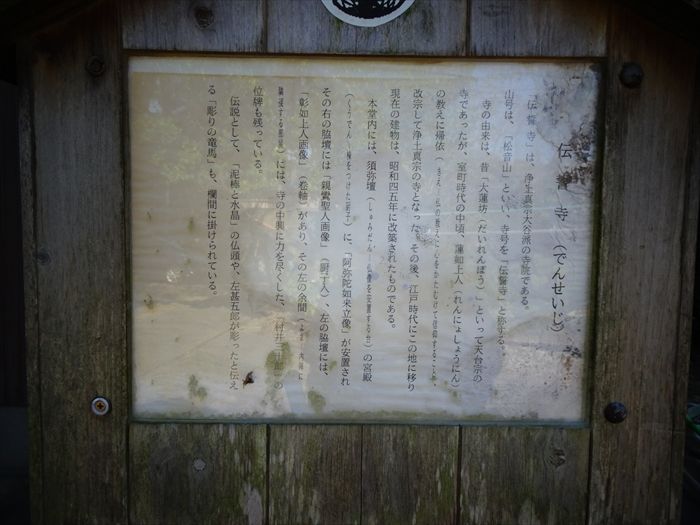 伝誓寺（でんせいじ）
「伝誓寺」は、浄土真宗大谷派の寺院である。
山号は、「松音山」といい、寺号を「伝誓寺」と称する。
寺の由来は、昔「大蓮坊（だいれんぼう）」といって天台宗の
寺であったが、室町時代の中頃、蓮如上人（れんにょしょうにん）
の教えに帰依（きえ―仏の教えに心をかたむけて信仰すること）、
改宗して浄土真宗の寺となった。その後、江戸時代にこの地に移り
現在の建物は、昭和四五年に改築されたものである。
本堂内には、須弥壇（しゅみだん―仏像を安置する台）の宮殿
（くうでん―棟をつけた厨子）に、「阿弥陀如来立像」が安置され
その右の脇壇には「親鸞聖人画像」（厨子入）、左の脇壇には、
「彰如上人画像」（巻軸）があり、その左の余間（よま―内陣に
隣接する部屋）には、寺の中興に力を尽くした、「村井
の
位牌も残っている。
伝説として、「泥棒と水晶」の仏頭や、左甚五郎が彫ったと伝え
る「彫りの竜馬」も、欄間に掛けられている。